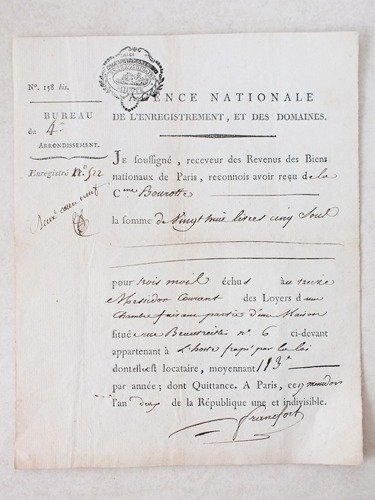 N°. 158 bis.
AGENCE NATIONALE
DE L'ENREGISTREMENT, ET DES DOMAINES.
BUREAU
du 4e
ARRONDISSEMENT.
Enregistré N° 522
JE soussigné, receveur des Revenus des Biens
nationaux de Paris, reconnois avoir reçu de la
Cenne Bourotte
la somme de Vingt huit livres cinq Souls
pour trois mois échus au treize
Messidor Courant des Loyers d'une
Chambre faisant partie d'une Maison
située rue n° 6 ci-devant
appartenant à frapé par la loi
dont elle est locataire, moyennant 113
par année; dont Quittance. A Paris, ce messidor
l'an deux de la République une et indivisible.
Francfort